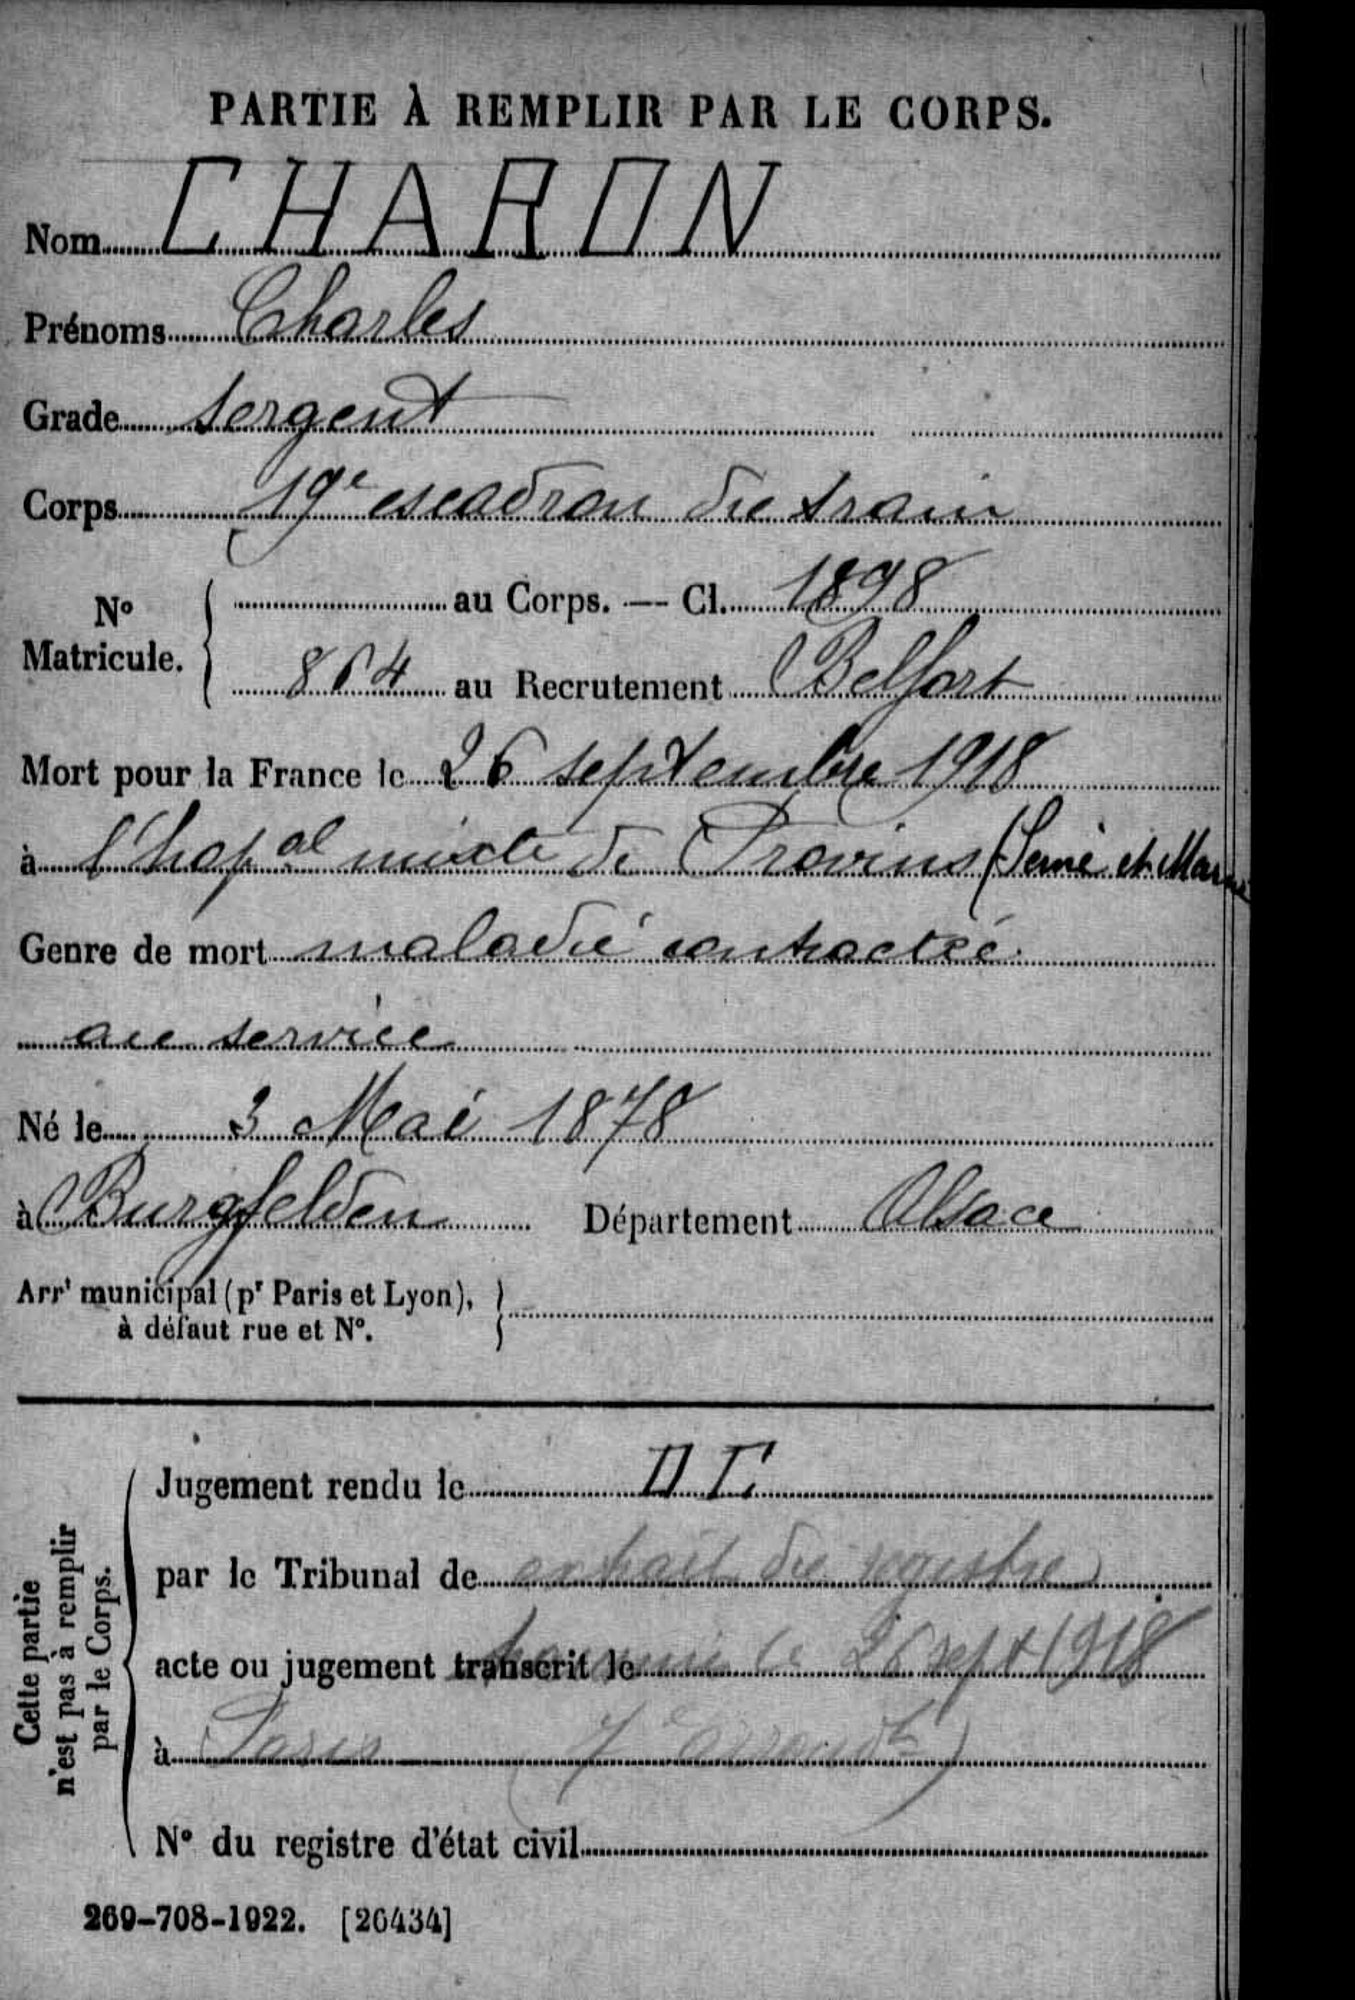 PARTIE À REMPLIR PAR LE CORPS.
Nom CHARON
Prénoms Charles
Grade sergent
Corps 19e escadron du train
N° Matricule. au Corps. — Cl. 1898
864 au Recrutement Belfort
Mort pour la France le 26 septembre 1918
à l'hopal mixte de Provins (Seine et Marne
Genre de mort maladie contractée
au service
Né le 3 Mai 1878
à Burgfelden Département Alsace
Arrt municipal (pr Paris et Lyon),
à défaut rue et N°.
Cette partie n'est pas à remplir par le Corps.
Jugement rendu le DC
par le Tribunal de extrait du registre
acte ou jugement transcrit le 26 sept 1918
à Paris (7e arrondt)
N° du registre d'état civil
269-708-1922. [26434]